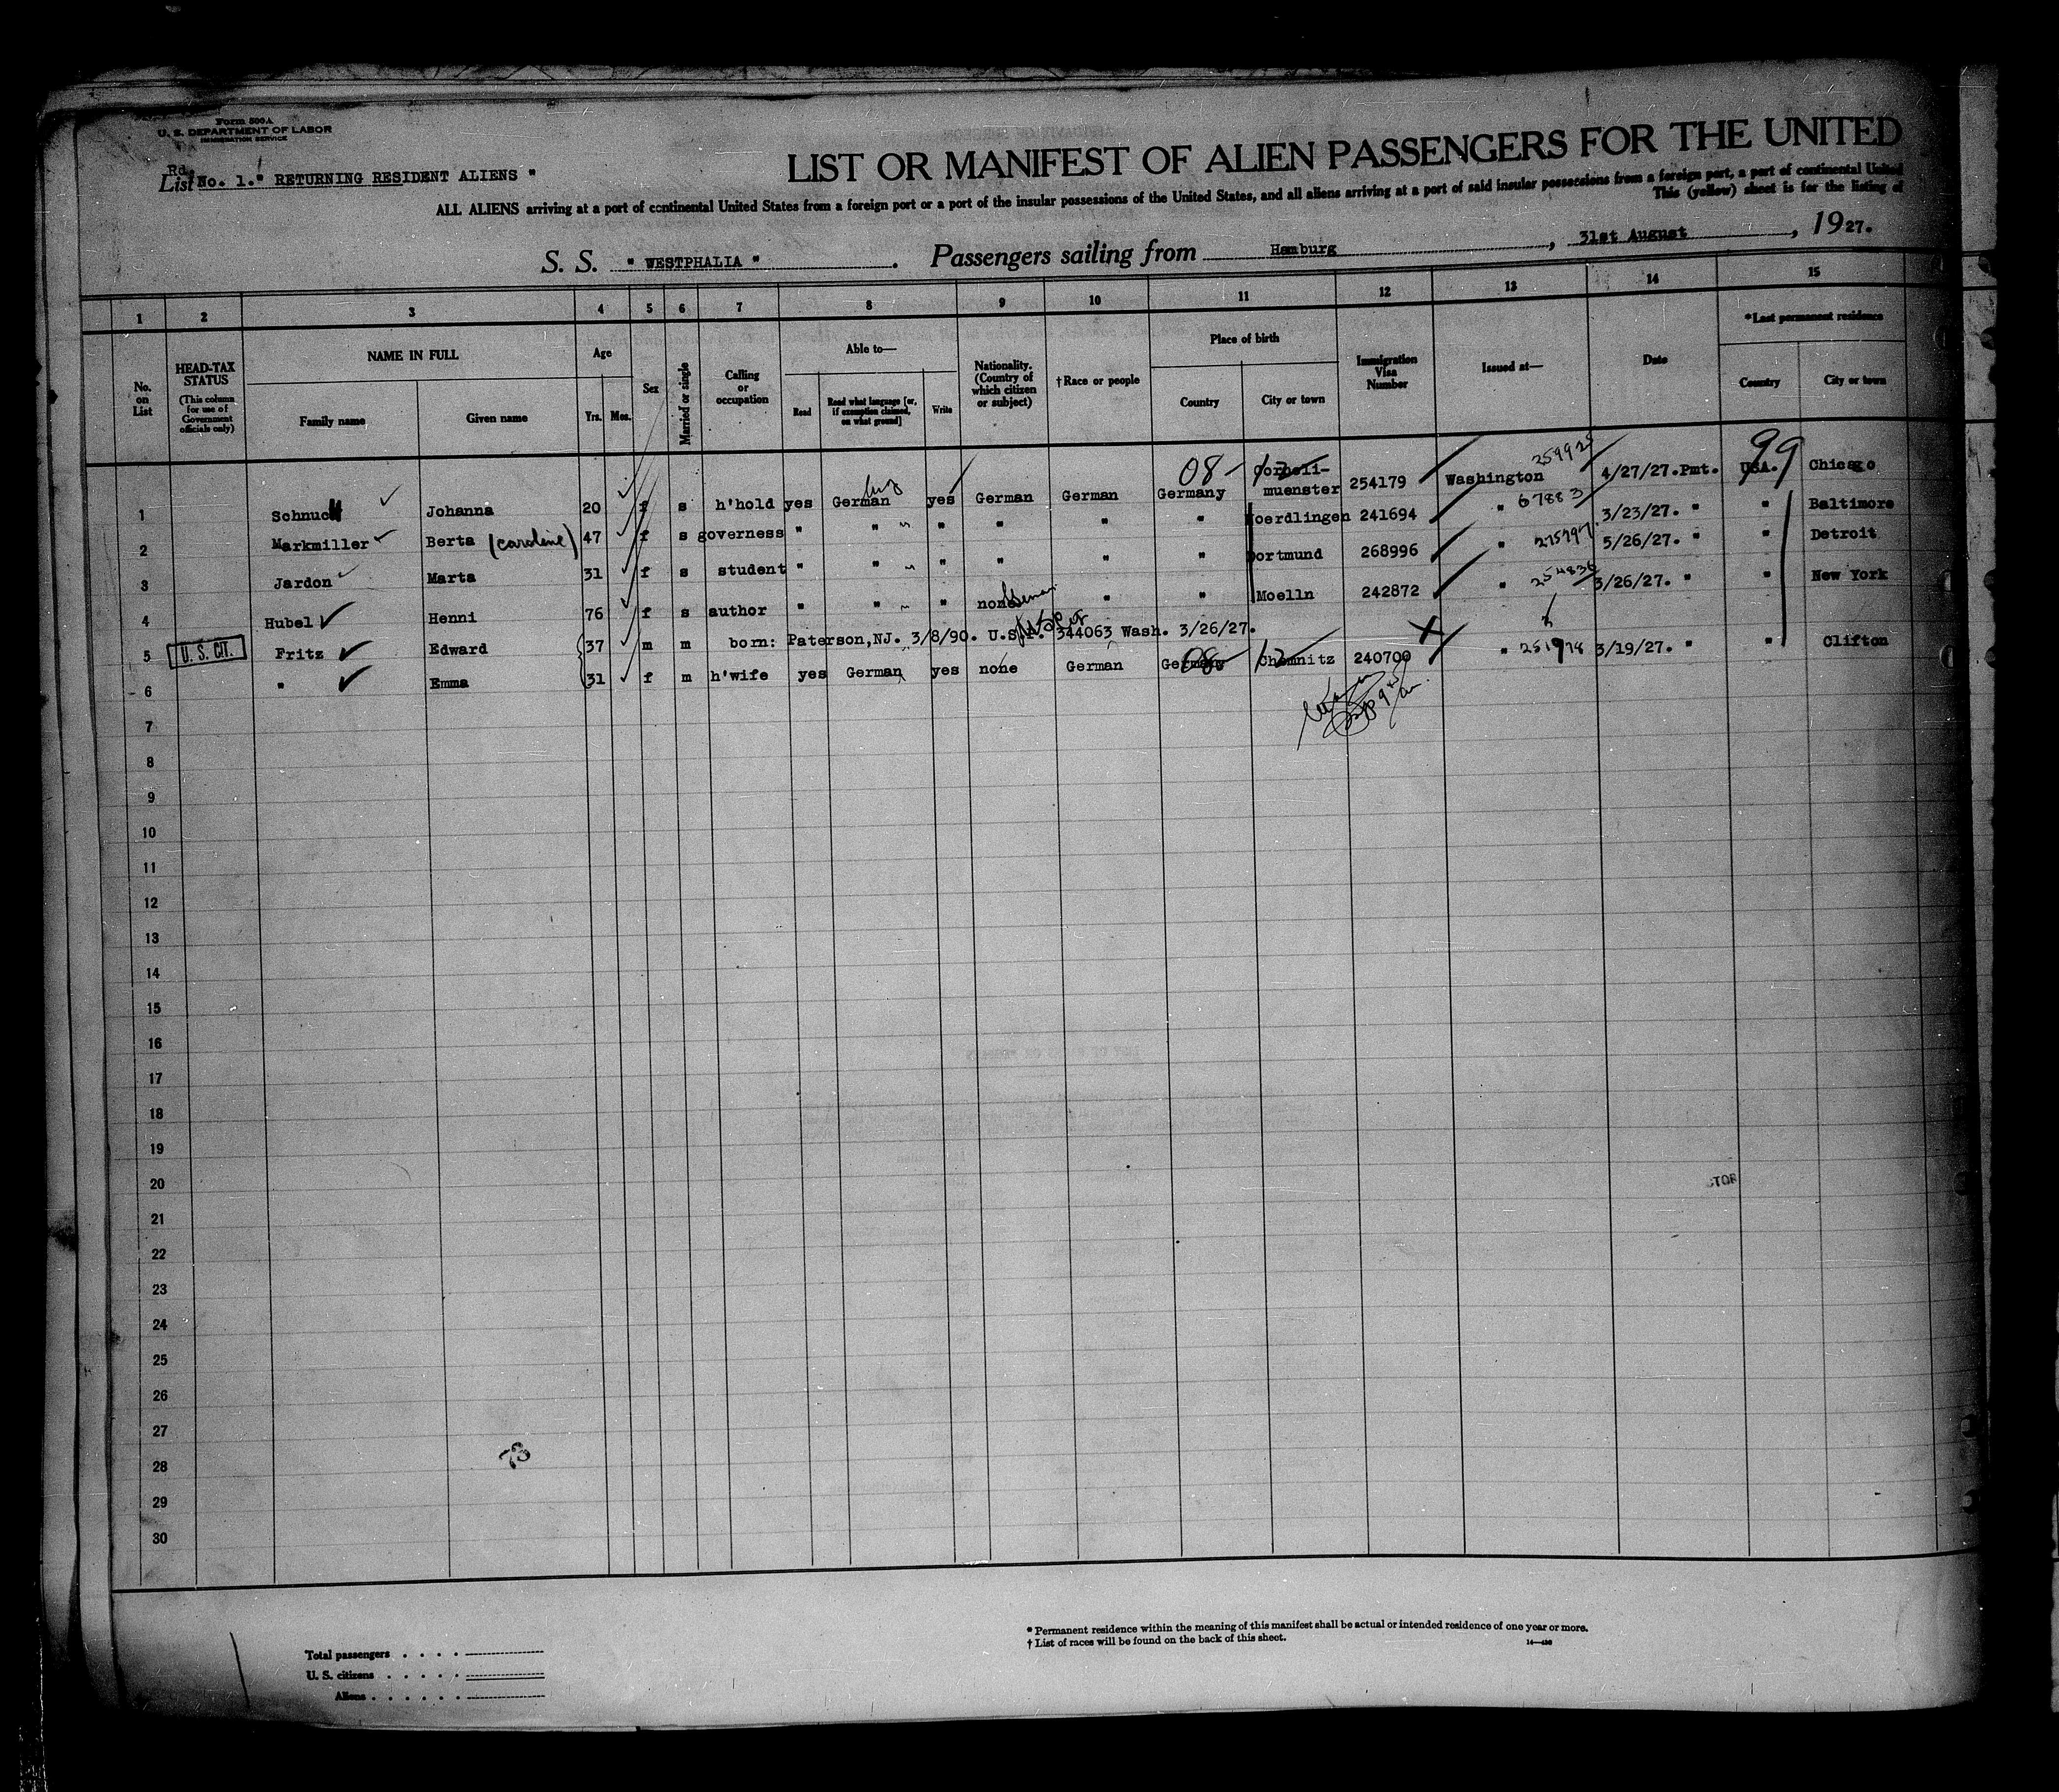 Form 500A
U. S. DEPARTMENT OF LABOR
IMMIGRATION SERVICE
Rd.
List No. 1. " RETURNING RESIDENT ALIENS "
LIST OR MANIFEST OF ALIEN PASSENGERS FOR THE UNITED
ALL ALIENS arriving at a port of continental United States from a foreign port or a port of the insular possessions of the United States, and all aliens arriving at a port of said insular possessions from a foreign port, a part of continental United
This (yellow) sheet is for the listing of
S. S. " WESTPHALIA ". Passengers sailing from Hamburg, 31st August, 1927.
1 2 3 4 5 6 7 8 9 10 11 12 13 14 15
No. on List
HEAD-TAX STATUS
(This column for use of Government officials only)
NAME IN FULL
Family name
Given name
Age
Yrs. Mos.
Sex
Married or single
Calling or occupation
Able to—
Read
Read what language [or, if exemption claimed, on what ground]
Write
Nationality. (Country of which citizen or subject)
†Race or people
Place of birth
Country
City or town
Immigration Visa Number
Issued at—
Date
*Last permanent residence
Country
City or town
1 Johanna 20 f s h'hold yes German yes German German Germany 08- Corneli-muenster 254179 Washington 4/27/27.Pmt. USA. 99 Chicago
2 Markmiller Berta (Caroline) 47 f s governess " " " " " " Noerdlingen 241694 " 67883 3/23/27. " " Baltimore
3 Jardon Marta 31 f s student " " " " " " Dortmund 268996 " 5/26/27. " " Detroit
4 Hubel Henni 76 f s author " " " none German " " Moelln 242872 " 254836 3/26/27. " " New York
5 U. S. CIT. Fritz Edward 37 m m born: Paterson,NJ. 3/8/90. U.S.P. 344063 Wash. 3/26/27.
6 " Emma 31 f m h'wife yes German yes none German Germany 08 Chemnitz 240700 " 3/19/27. " " Clifton
7
8
9
10
11
12
13
14
15
16
17
18
19
20
21
22
23
24
25
26
27
28
29
30
73
Total passengers
U. S. citizens
Aliens
* Permanent residence within the meaning of this manifest shall be actual or intended residence of one year or more.
† List of races will be found on the back of this sheet.